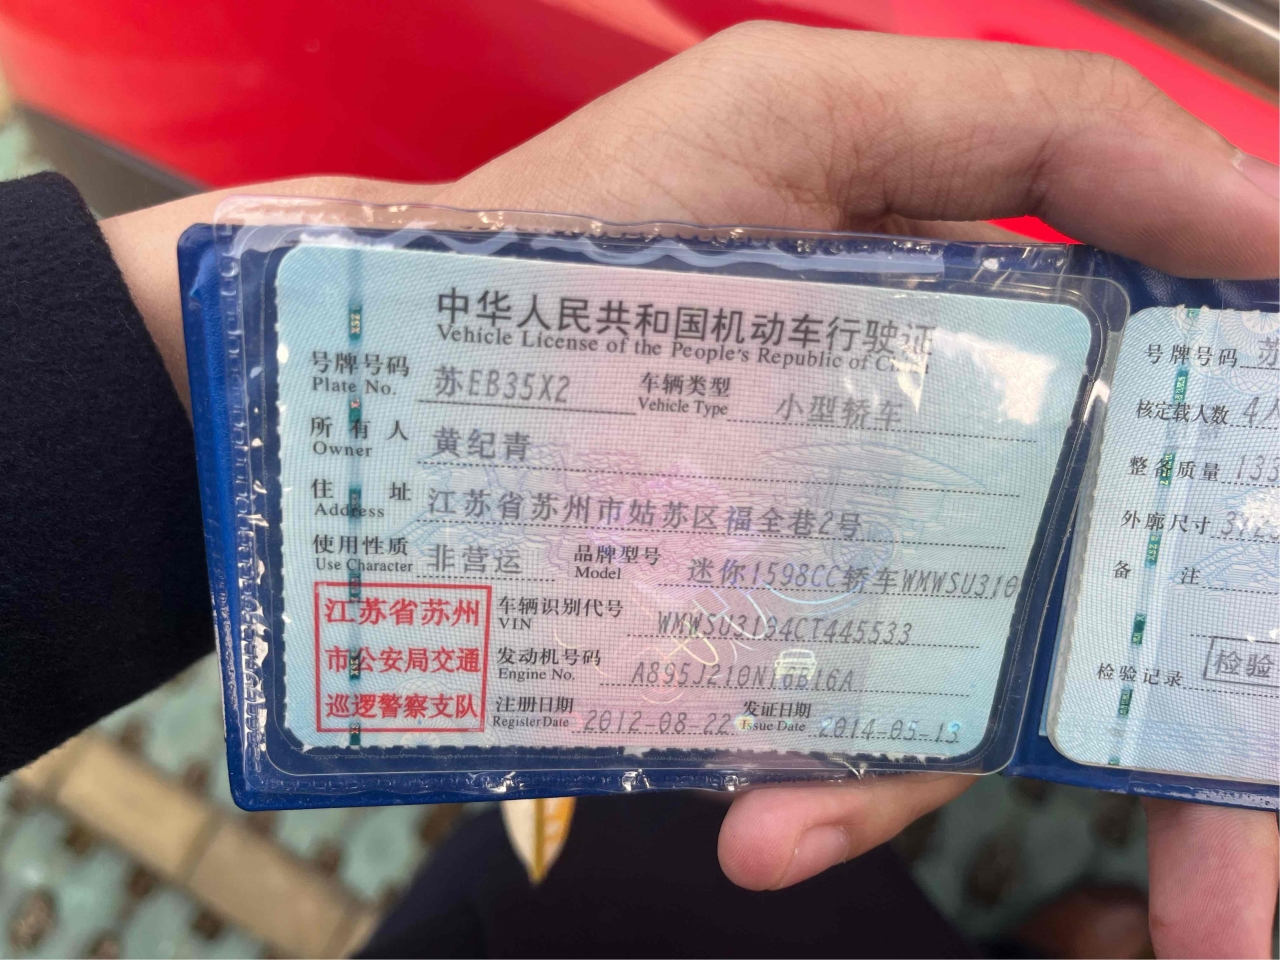 中华人民共和国机动车行驶证
Vehicle License of the People's Republic of China
号牌号码 苏EB35X2 车辆类型 小型轿车
Plate No. Vehicle Type
所有人 黄纪青
Owner
住址 江苏省苏州市姑苏区福全巷2号
Address
使用性质 非营运 品牌型号 迷你1598CC轿车WMWSU310
Use Character Model
江苏省苏州
市公安局交通
巡逻警察支队
车辆识别代号
VIN
发动机号码
Engine No.
注册日期 2012-08-22 发证日期 2014-05-13
Register Date Issue Date
号牌号码 苏
核定载人数 4人
整备质量 133
外廓尺寸
备注
检验记录 检验